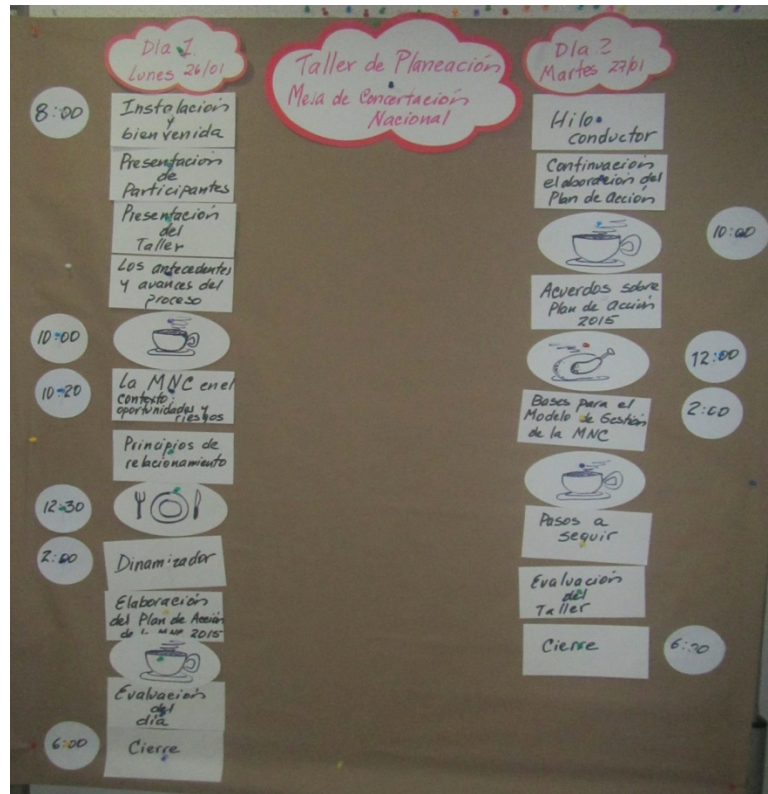 Taller de Planeación
Mesa de Concertación
Nacional
Día 1
Lunes 26/01
8:00
Instalación
y
bienvenida
Presentación
de
Participantes
Presentación
del
Taller
Los antecedentes
y avances del
proceso
10:00
10:20
La MNC en el
contexto:
oportunidades y
riesgos
Principios de
relacionamiento
12:30
2:00
Dinamizador
Elaboración
del Plan de Acción
2015
Evaluación
del
día
6:00
Cierre
Día 2
Martes 27/01
Hilo
conductor
Continuación
elaboración del
Plan de acción
10:00
Acuerdos sobre
Plan de acción
2015
12:00
2:00
Bases para el
Modelo de Gestión
de la MNC
Pasos a
seguir
Evaluación
del
Taller
Cierre